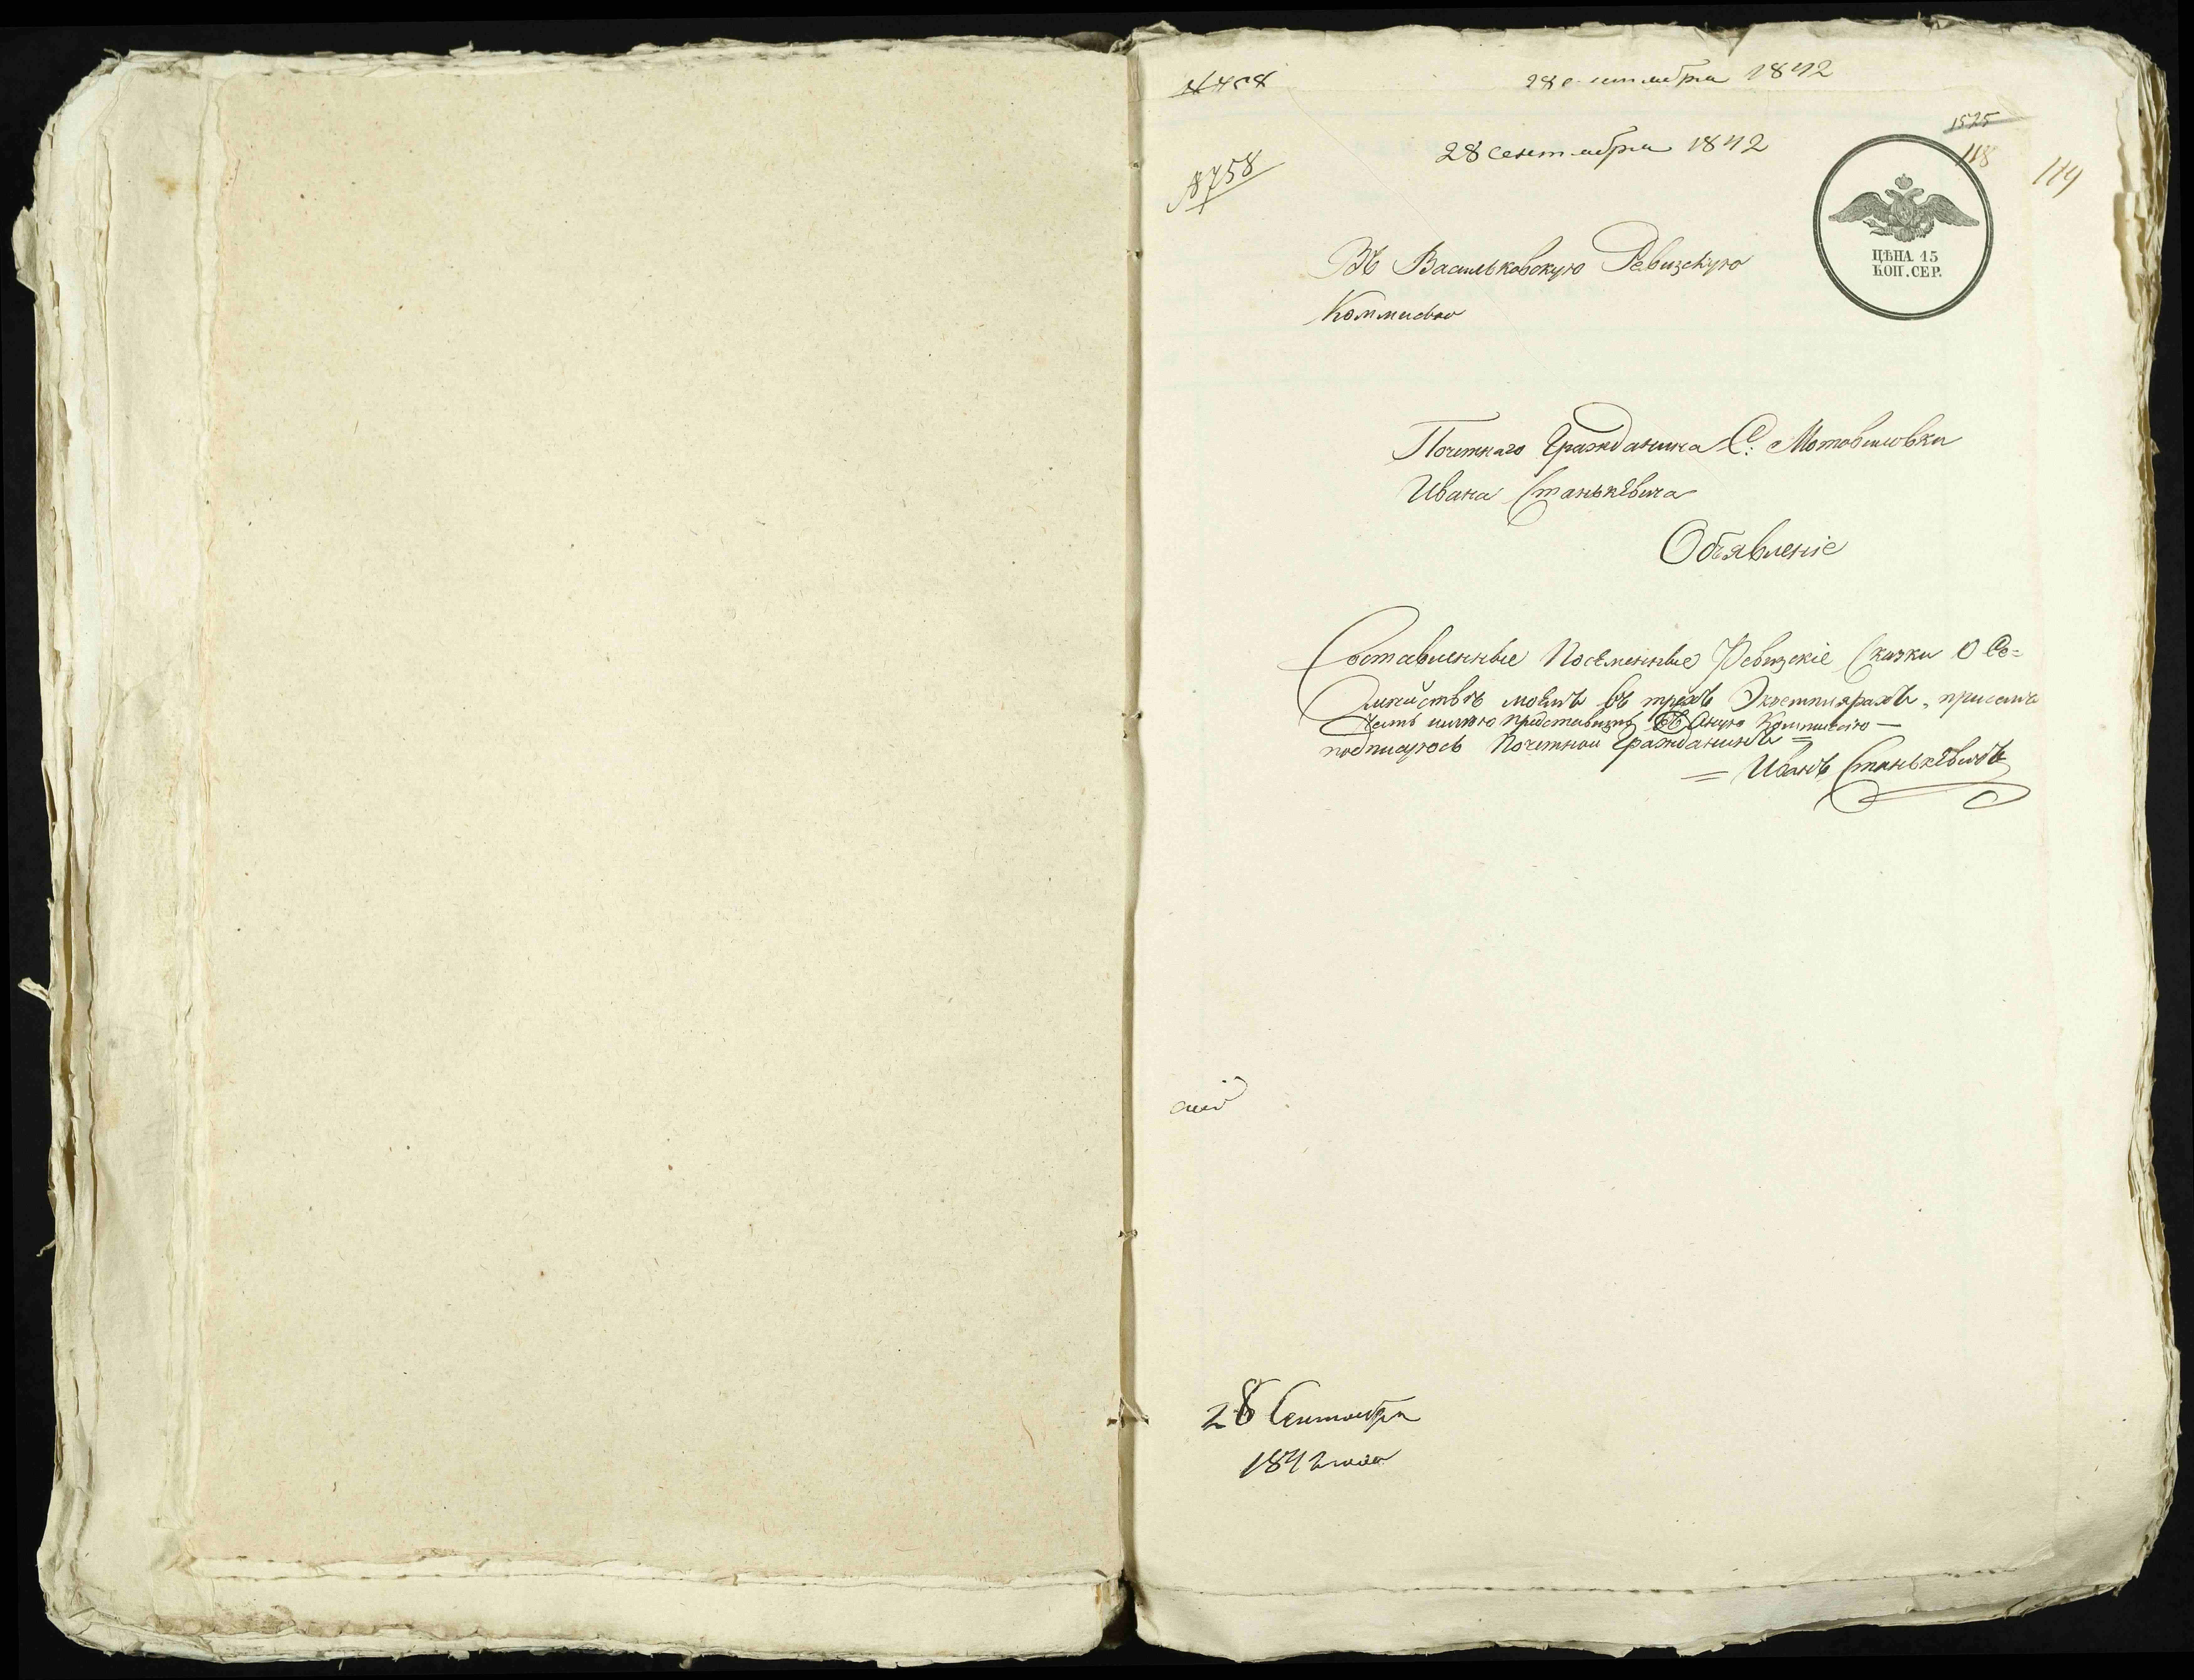 28 сентября 1842
1525
28 сентября 1842
118
119
№ 758
ЦѢНА 15
КОП. СЕР.
Въ Васильковскую Ревизскую
Коммисію
Почетнаго Гражданина С: Мотовиловки
Ивана Станькѣвича
Объявленіе
Составленные Посѣменные Ревизскіе Сказки О Се=
мѣйствѣ моемъ въ трехъ Экземплярахъ, при семъ
честь имѣю представить въ Оную Коммисію —
подписуюсь Почетной Гражданинъ =
= Иванъ Станькѣвичъ
28 Сентября
1842 года